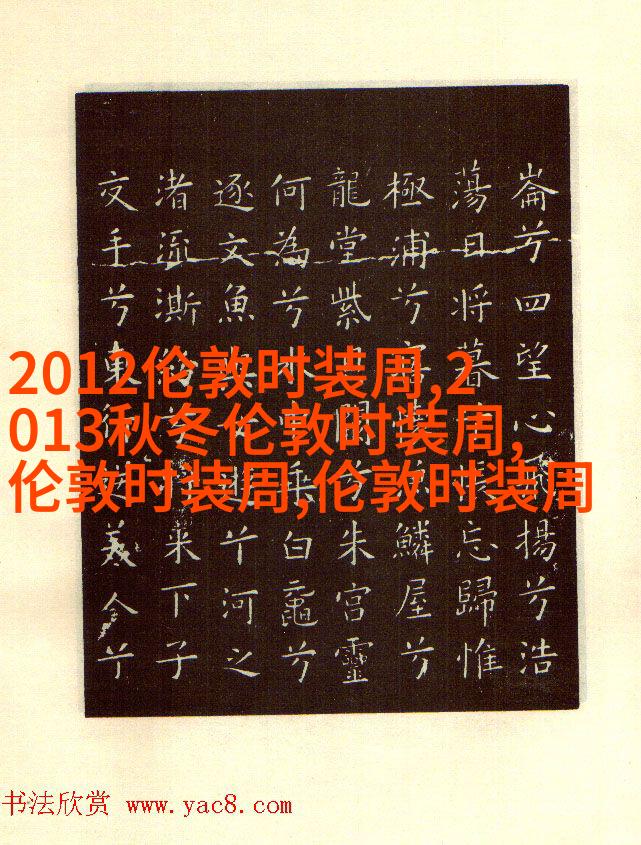 崙兮四望心揚兮浩
蕩日將暮忘歸惟
極浦兮鱗屋兮
龍堂紫闕兮朱宮靈
何為兮水乘白黿兮
逐文魚與女遊兮河之
渚流澌紛兮來下子
交手兮東行美人兮
2012伦敦时装周,2
013秋冬伦敦时装周,
伦敦时装周,伦敦时装周
书法欣赏 www.yac8.com